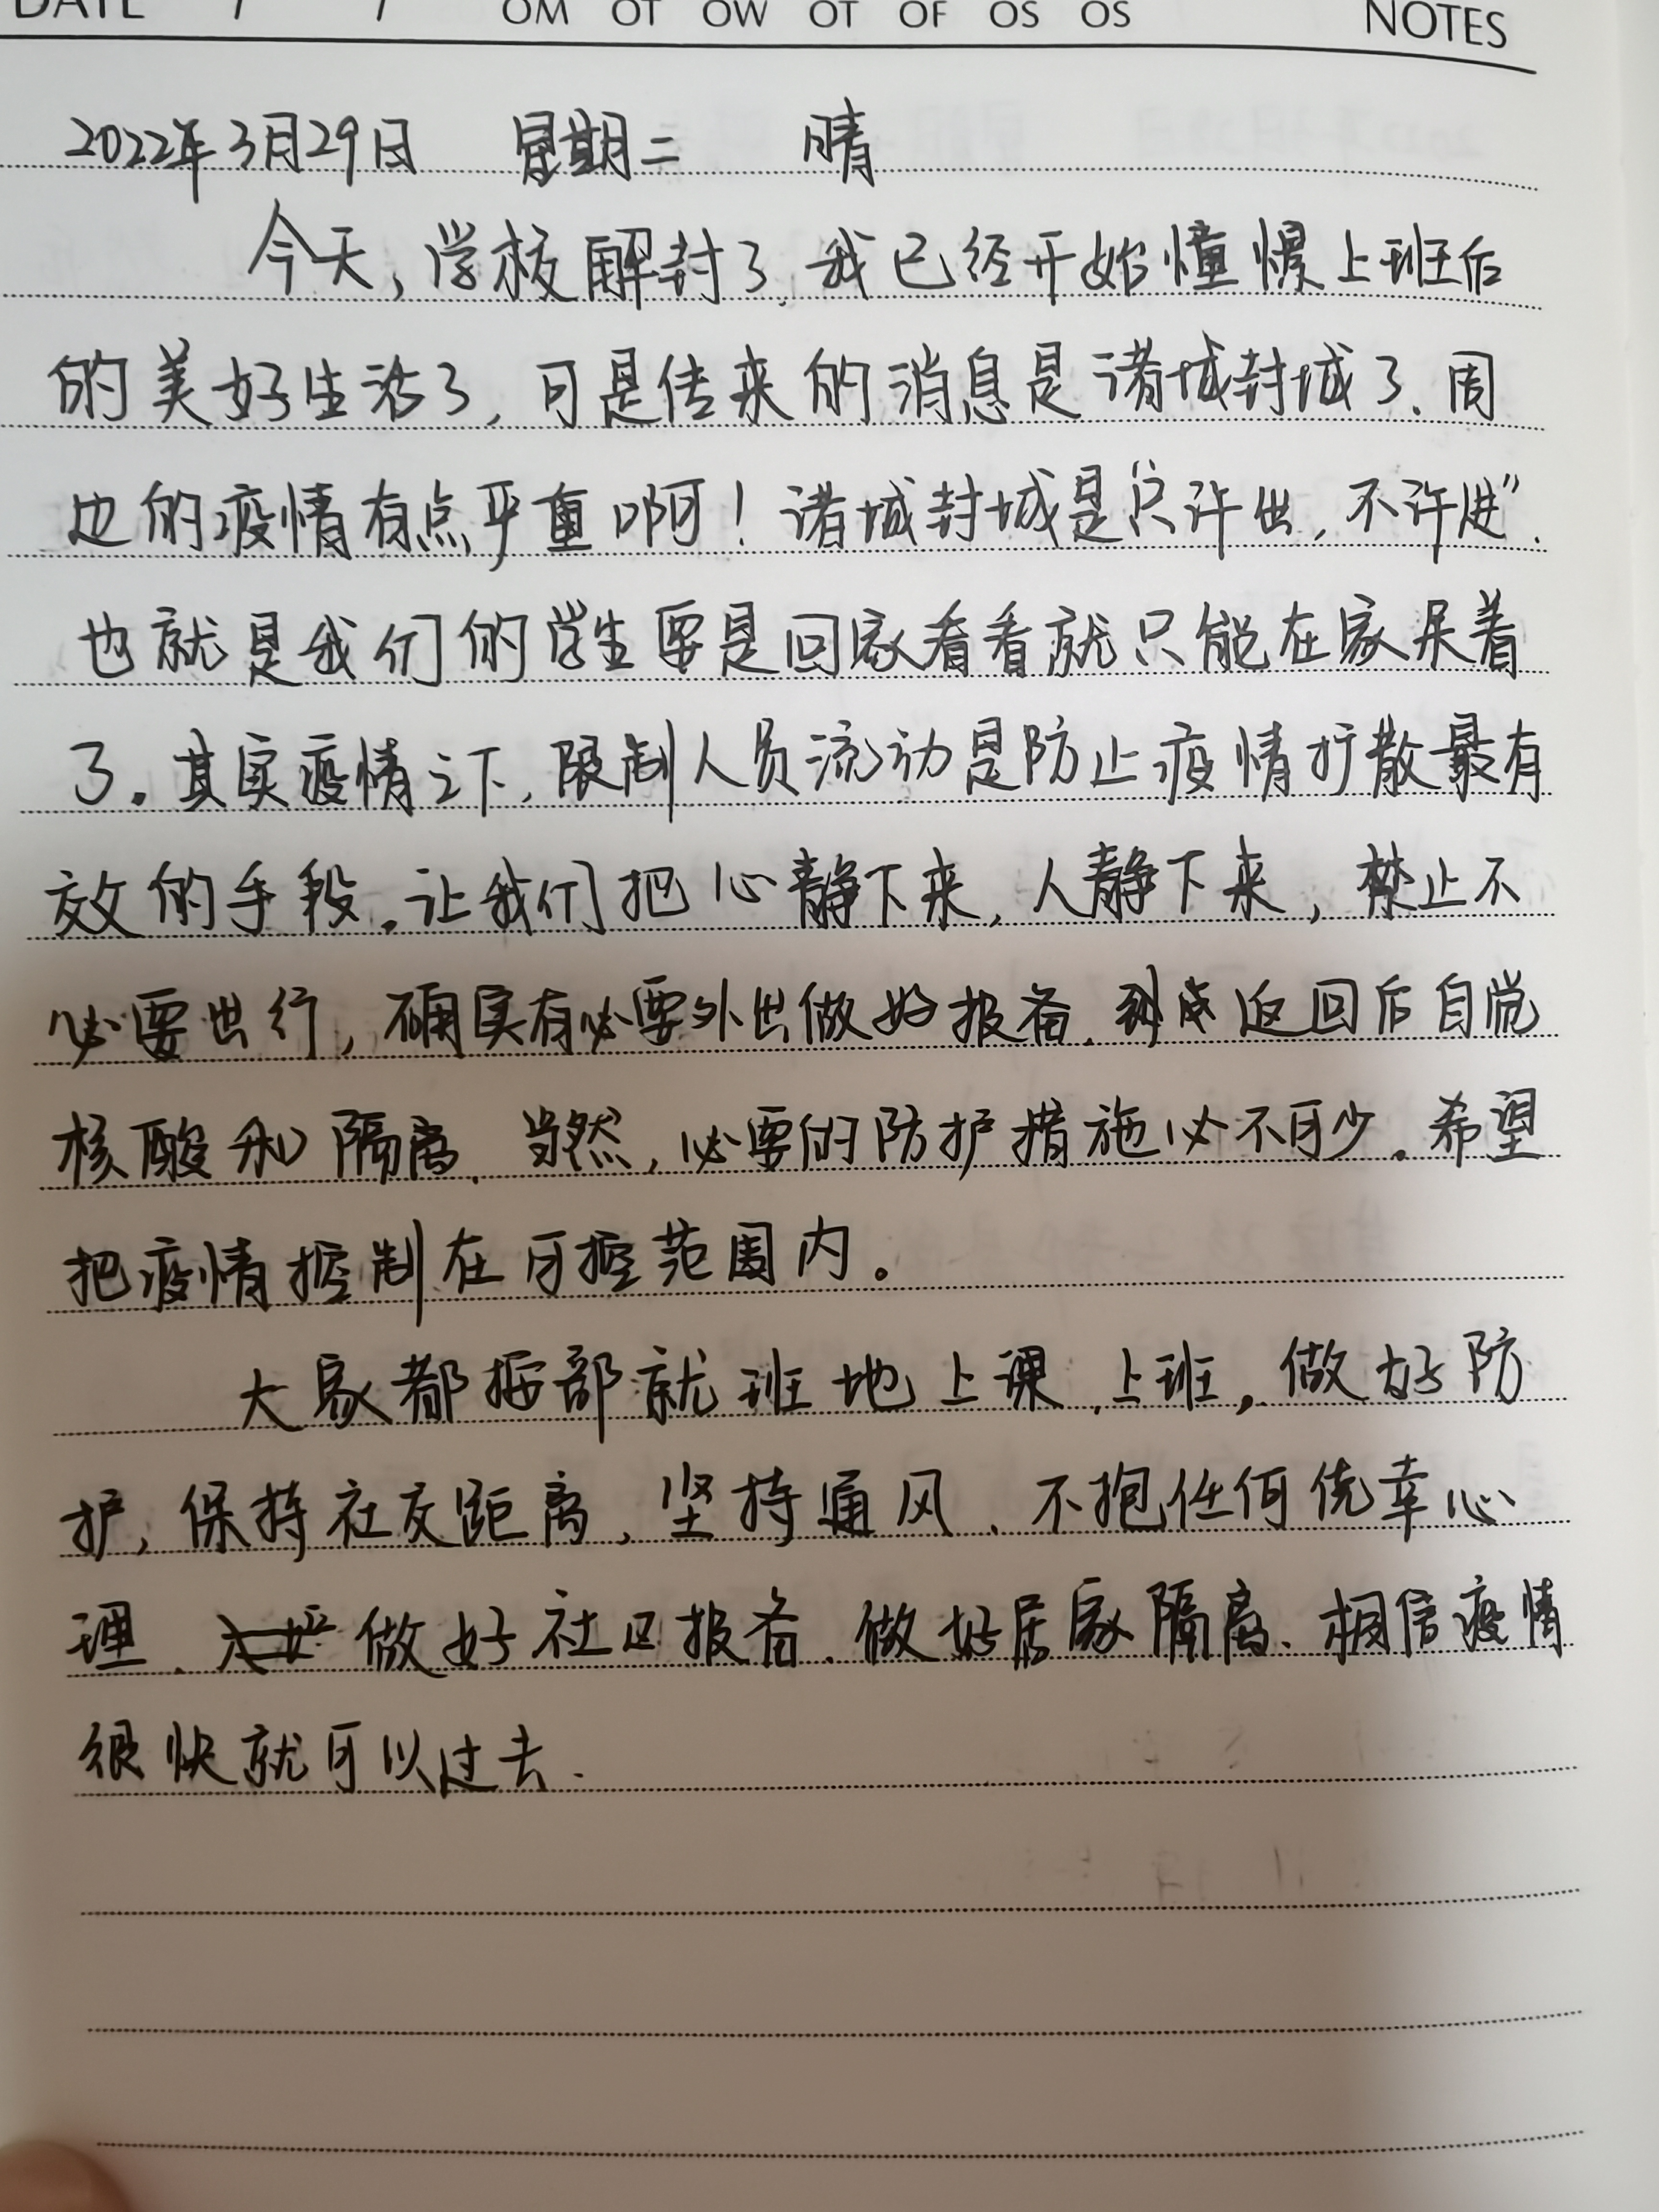 DATE / / OM OT OW OT OF OS OS NOTES
2022年3月29日 星期二 晴
今天,学校解封了,我已经开始憧憬上班后
的美好生活了,可是传来的消息是诸城封城了、周
边的疫情有点严重啊!诸城封城是“只许出,不许进”.
也就是我们的学生要是回家看看就只能在家呆着
了。其实疫情之下,限制人员流动是防止疫情扩散最有
效的手段。让我们把心静下来,人静下来,禁止不
必要出行,确实有必要外出做好报备、返回后自觉
核酸和隔离、当然,必要的防护措施必不可少。希望
把疫情控制在可控范围内。
大家都按部就班地上课、上班,做好防
护,保持社交距离、坚持通风、不抱任何侥幸心
理、做好社区报备、做好居家隔离、相信疫情
很快就可以过去.